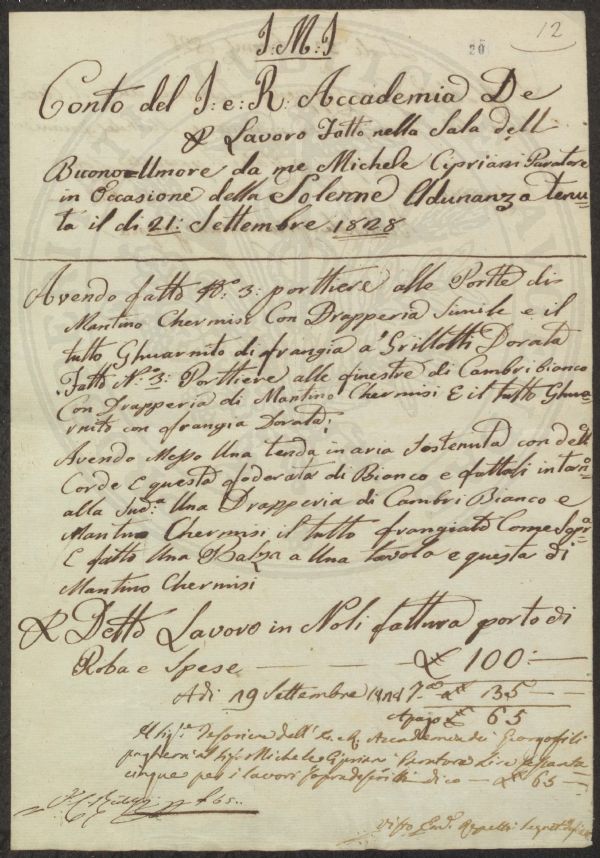 J. M. J
20
12
Conto del J: e: R: Accademia De
Lavoro Fatto nella Sala dell
Buono=Umore da me Michele Cipriani Paratore
in Occasione della Solenne Adunanza tenu=
ta il di 21: Settembre 1828
Avendo fatto N:o 3: porttiere alle Portte di
Mantino Chermisi Con Drapperia Simile e il
tutto Ghuarnito di frangia a' Grillotti Dorata
Fatto N:o 3: Porttiere alle finestre di Cambri bianco
Con Drapperia di Mantino Chermisi E il tutto Ghua=
rnito con frangia Dorata;
Avendo Messo Una tenda in aria Sostenuta con
Corde e questa foderata di Bianco e fattoli intor
alla Sud.a Una Drapperia di Cambri Bianco e
Mantino Chermisi il tutto frangiato Come Sopr
E fatto Una Balza a Una tavola e questa di
Mantino Chermisi
Detto Lavoro in Noli fattura porto di
Roba e Spese — — — £ 100:—
Adi 19 Settembre 35 —
£ 65
Il Sig.re Tesoriere dell' I. e R. Accademia dei Georgofili
pagherà al Sig. Michele Cipriani Paratore Lire sessanta
cinque per i lavori sopradescritti dico — £ 65 —
£ 65..
Visto